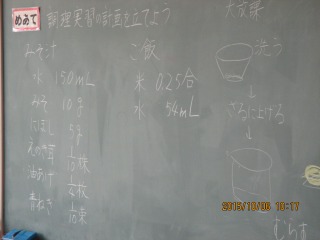 めあて 調理実習の計画を立てよう
みそ汁
水 150mL
みそ 10g
にぼし 5g
えのき茸 1/10株
油あげ 1/4枚
青ねぎ 1/10束
ご飯
米 0.25合
水 54mL
洗う
↓
ざるに上げる
↓
むらす
2015/10/06 10:17